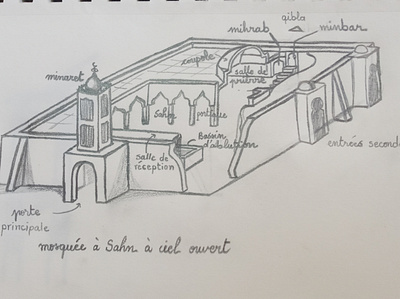 qibla
mihrab
minbar
coupole
salle de
prière
minaret
Sahn
portique
Bassin
d'ablution
salle de
réception
entrées second
porte
principale
mosquée à Sahn à ciel ouvert